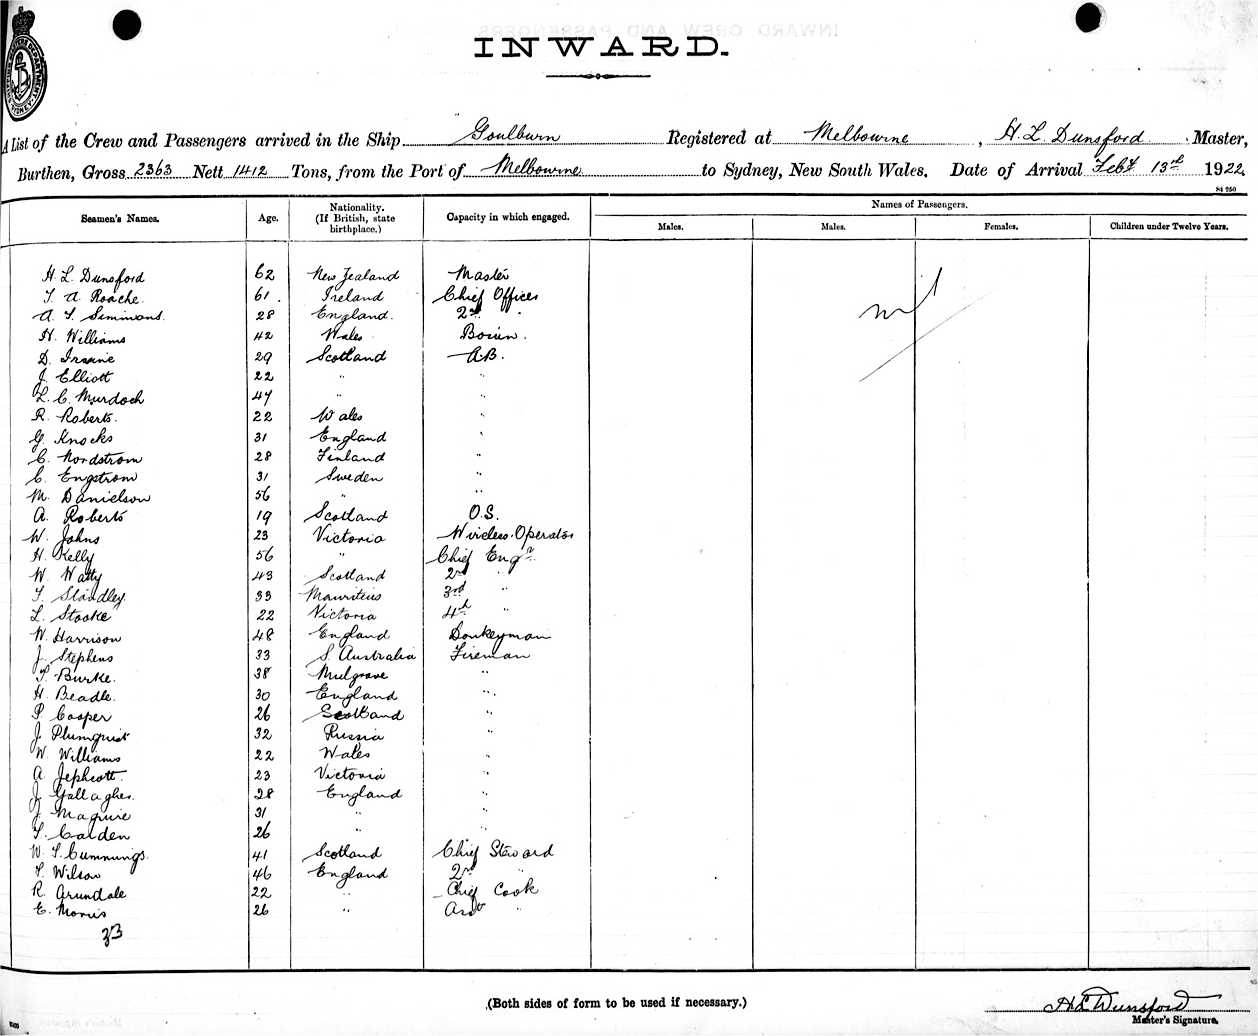 INWARD.
A List of the Crew and Passengers arrived in the Ship Goulburn Registered at Melbourne, H. L. Dunsford Master,
Burthen, Gross 2363 Nett 1412 Tons, from the Port of Melbourne to Sydney, New South Wales. Date of Arrival Feby 13th 1922.
St 250
Seamen's Names. Age. Nationality. (If British, state birthplace.) Capacity in which engaged. Names of Passengers.
Males. Males. Females. Children under Twelve Years.
H. L. Dunsford 62 New Zealand Master
T. A. Roache. 61. Ireland Chief Officer nil
A. T. Simmons. 28 England. 2nd "
H. Williams 42 Wales Bosun.
D. Irvine 29 Scotland AB.
J. Elliott 22 " "
L. C. Murdoch 47 " "
R. Roberts. 22 Wales "
G. Knocks 31 England "
C. Nordstrom 28 Finland "
C. Engstrom 31 Sweden "
M. Danielson 56 " "
A. Roberts 19 Scotland O.S.
W. Johns 23 Victoria Wireless Operator
H. Kelly 56 " Chief Engr.
W. Watty 43 Scotland 2nd "
T. Standley 33 Mauritius 3rd "
L. Stooke 22 Victoria 4th "
W. Harrison 48 England Donkeyman
J. Stephens 33 S. Australia Fireman
T. Burke. 38 Mulgrave "
H. Beadle. 30 England "
P. Cooper 26 Scotland "
J. Plumquist 32 Russia "
W. Williams 22 Wales "
A. Jephcott. 23 Victoria "
J. Gallagher. 28 England "
J. Maguire 31 " "
T. Carden 26 " "
W. T. Cummings. 41 Scotland Chief Steward
T. Wilson 46 England 2nd "
R. Arundale 22 " Chief Cook
E. Morris 26 " Asst "
33
(Both sides of form to be used if necessary.)
H L Dunsford
Master's Signature.